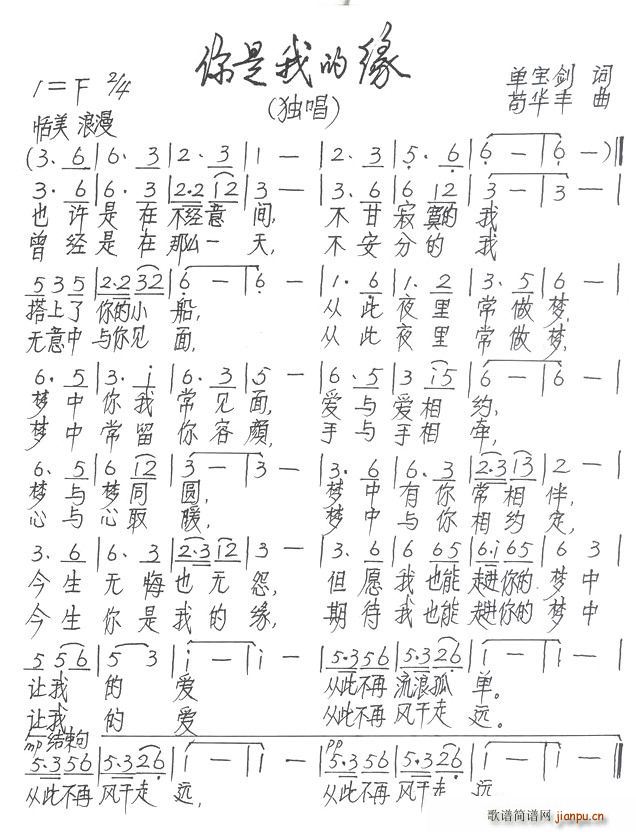 你是我的缘
(独唱)
1=F 2/4
单宝剑 词
苟华丰 曲
恬美 浪漫
(3. 6|6. 3|2. 3|1 —|2. 3|5. 6|6 —|6 —)‖
3. 6|6. 3|2·2 12|3 —|3. 6|6 12|3 —|3 —|
也许是在不经意间,不甘寂寞的我
曾经是在那么一天,不安分的我
5 3 5|2·2 32|6 —|6 —|1. 6|1. 2|3. 5|6 —|
搭上了你的小船,从此夜里常做梦,
无意中与你见面,从此夜里常做梦,
6. 5|3. i|6. 3|5 —|6. 5|3 i5|6 —|6 —|
梦中你我常见面,爱与爱相约,
梦中常留你容颜,手与手相牵,
6. 5|6 i2|3 —|3 —|3. 6|6. 3|2·3 13|2 —|
梦与梦同圆,梦中有你常相伴,
心与心取暖,梦中与你相约定,
3. 6|6. 3|2·3 12|3 —|3. 6|6 65|6·i 65|6 3|
今生无悔也无怨,但愿我也能走进你的梦中
今生你是我的缘,期待我也能走进你的梦中
5 56|5 3|i —|i —|5·3 56|5·3 26|1 —|1 —|
让我的爱 从此不再流浪孤单。
让我的爱 从此不再风干走远。
mp 结束句 pp
5·3 56|5·3 26|1 —|1 —|5·3 56|5·3 26|1 —|1 —‖
从此不再风干走远,从此不再风干走远
歌谱简谱网
jianpu.cn